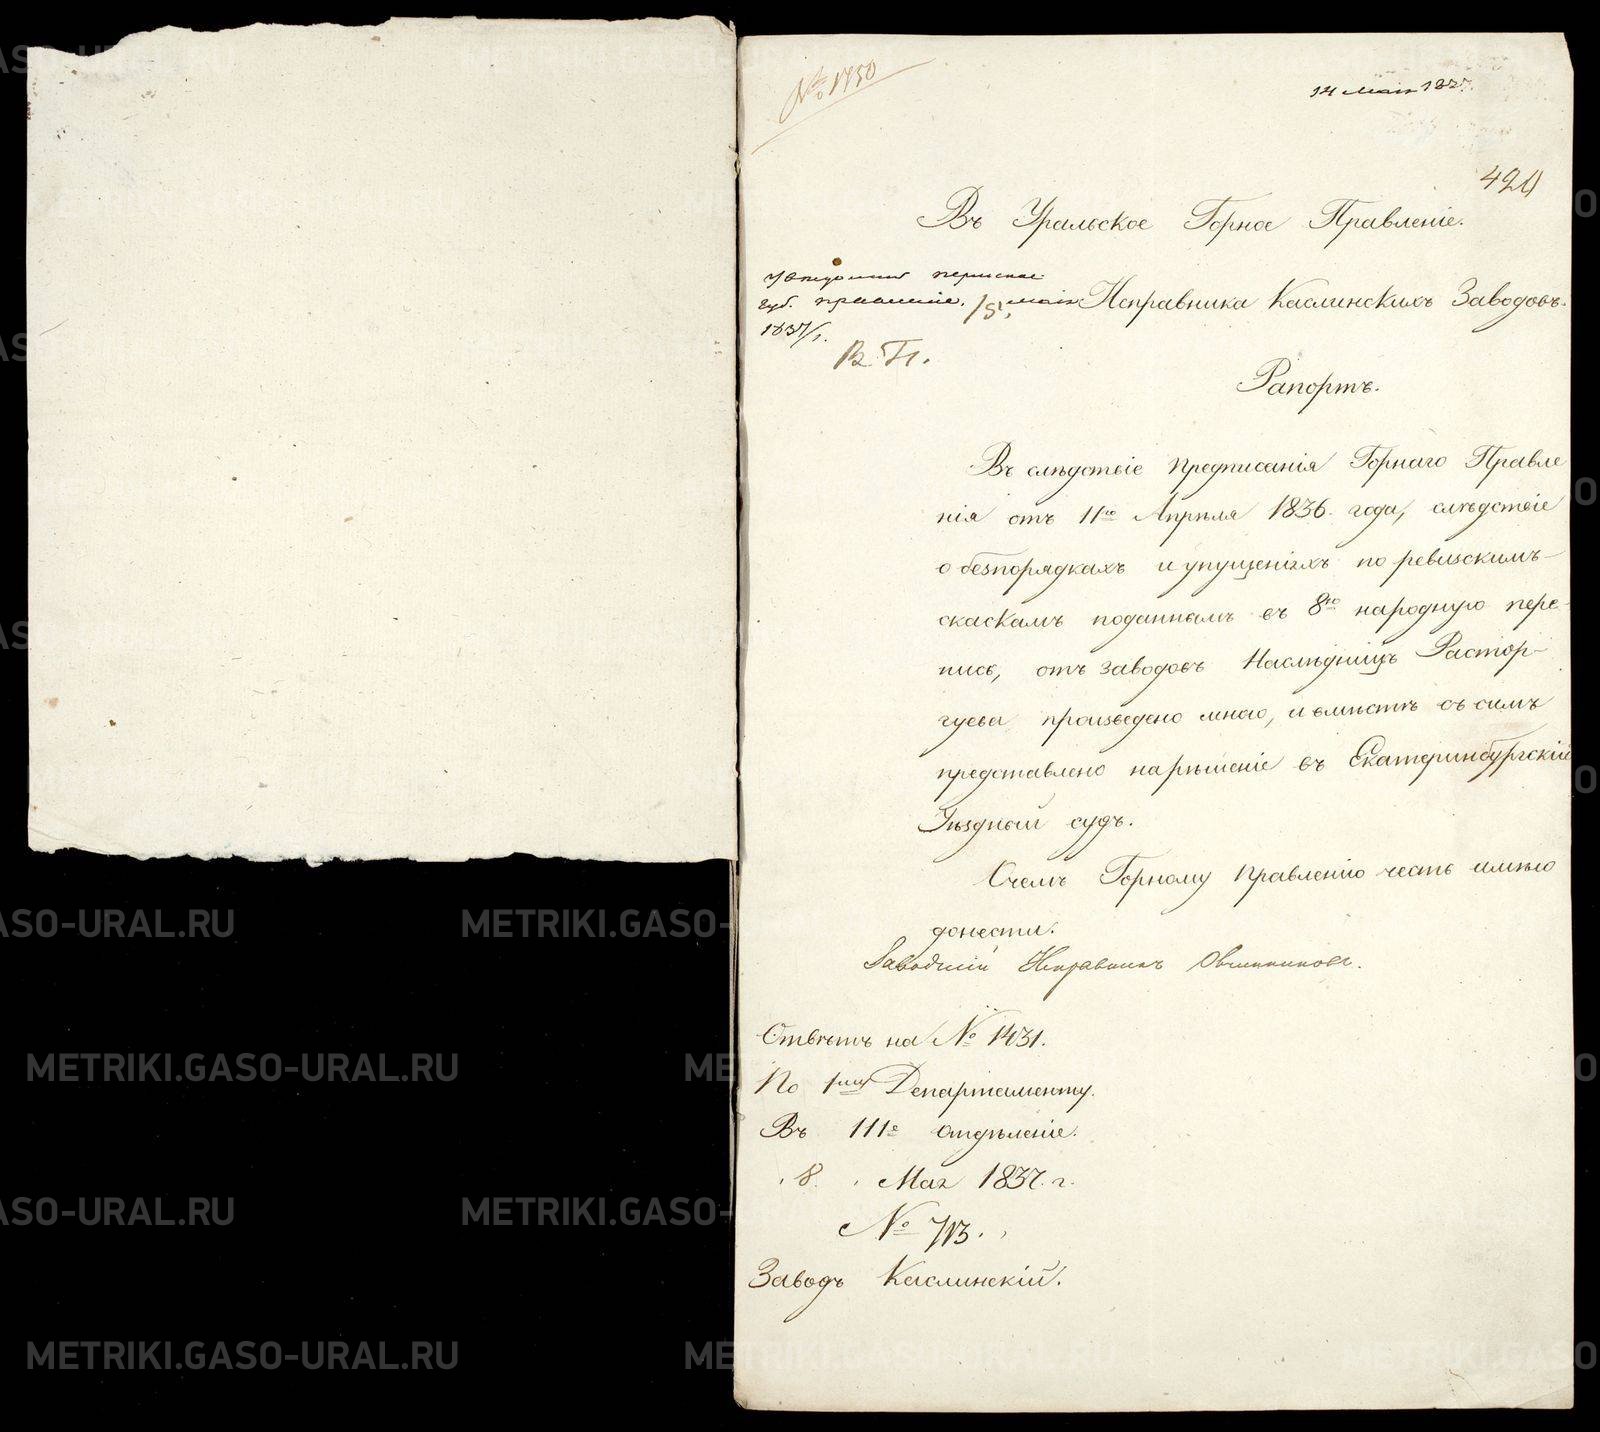 № 1750
14 Маія 1837.
424
Въ Уральское Горное Правленіе.
Увѣдомить пермское
губ. правленіе. 15, маія
1837/г.
Исправника Каслинскихъ Заводовъ.
Рапортъ.
Въ слѣдствіе предписанія Горнаго Правле
нія отъ 11го Апрѣля 1836 года, слѣдствіе
о безпорядкахъ и упущеніяхъ по ревизскимъ
скаскамъ поданнымъ въ 8ю народную пере-
пись, отъ заводовъ Наслѣдницъ Растор-
гуева произведено мною, и вмѣстѣ съ симъ
представлено нарѣшеніе въ Екатеринбургскій
Уѣздный судъ.
Очемъ Горному Правленію честь имѣю
донести.
Заводскій Исправникъ Овчинниковъ.
Отвѣтъ на № 1431.
По 1му Департаменту.
Въ 111е отдѣленіе.
8. Мая 1837. г.
№ 713.
Заводъ Каслинскій.
METRIKI.GASO-URAL.RU